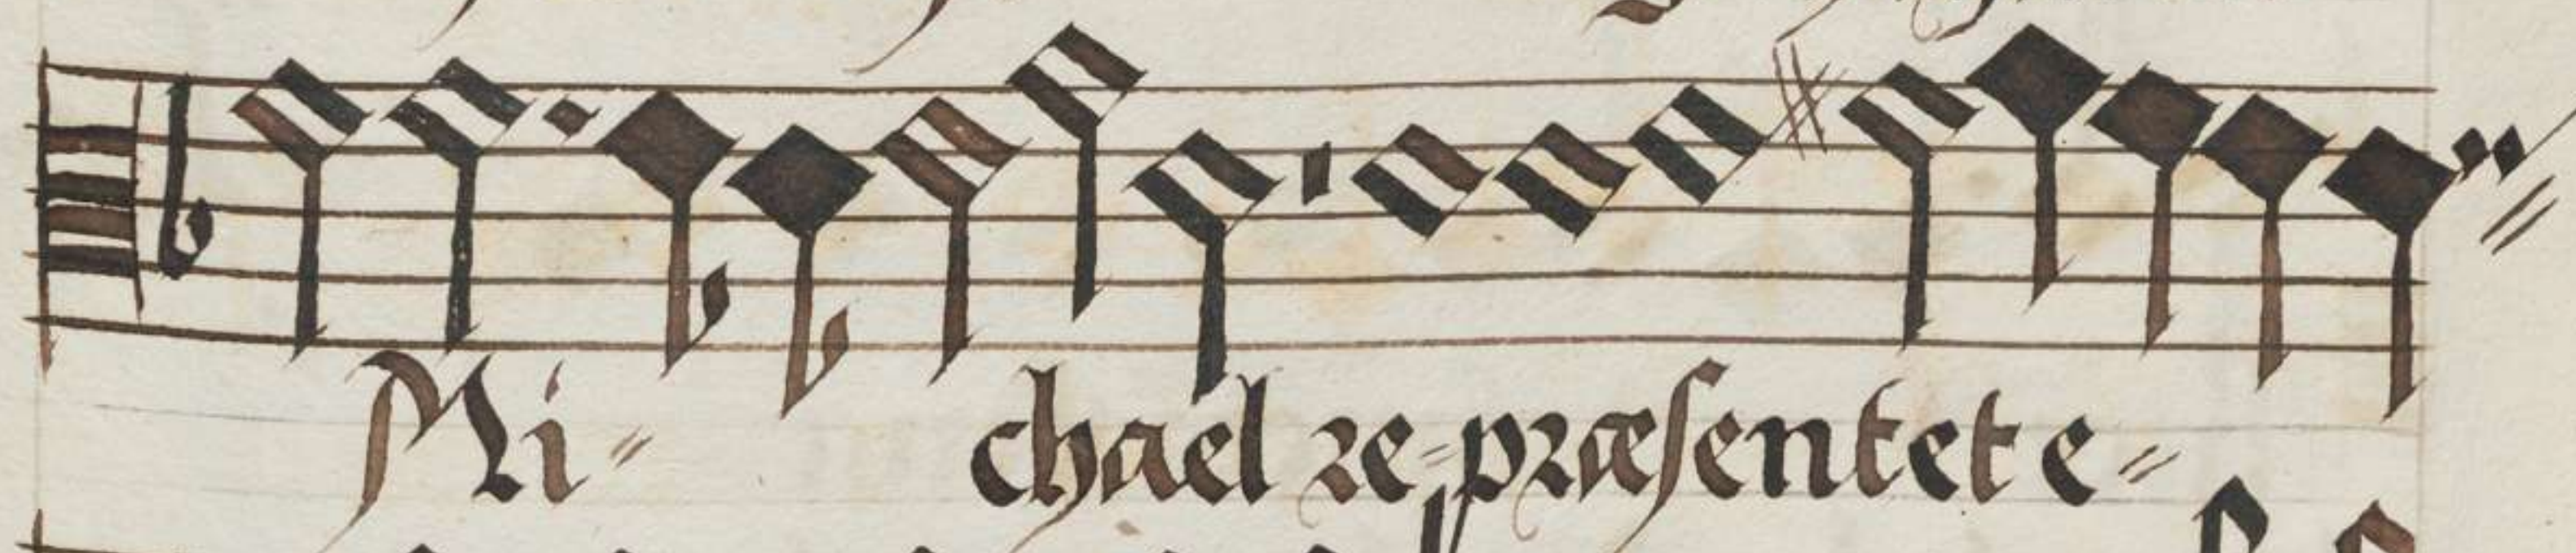 Mi= chael re=præſentet e=